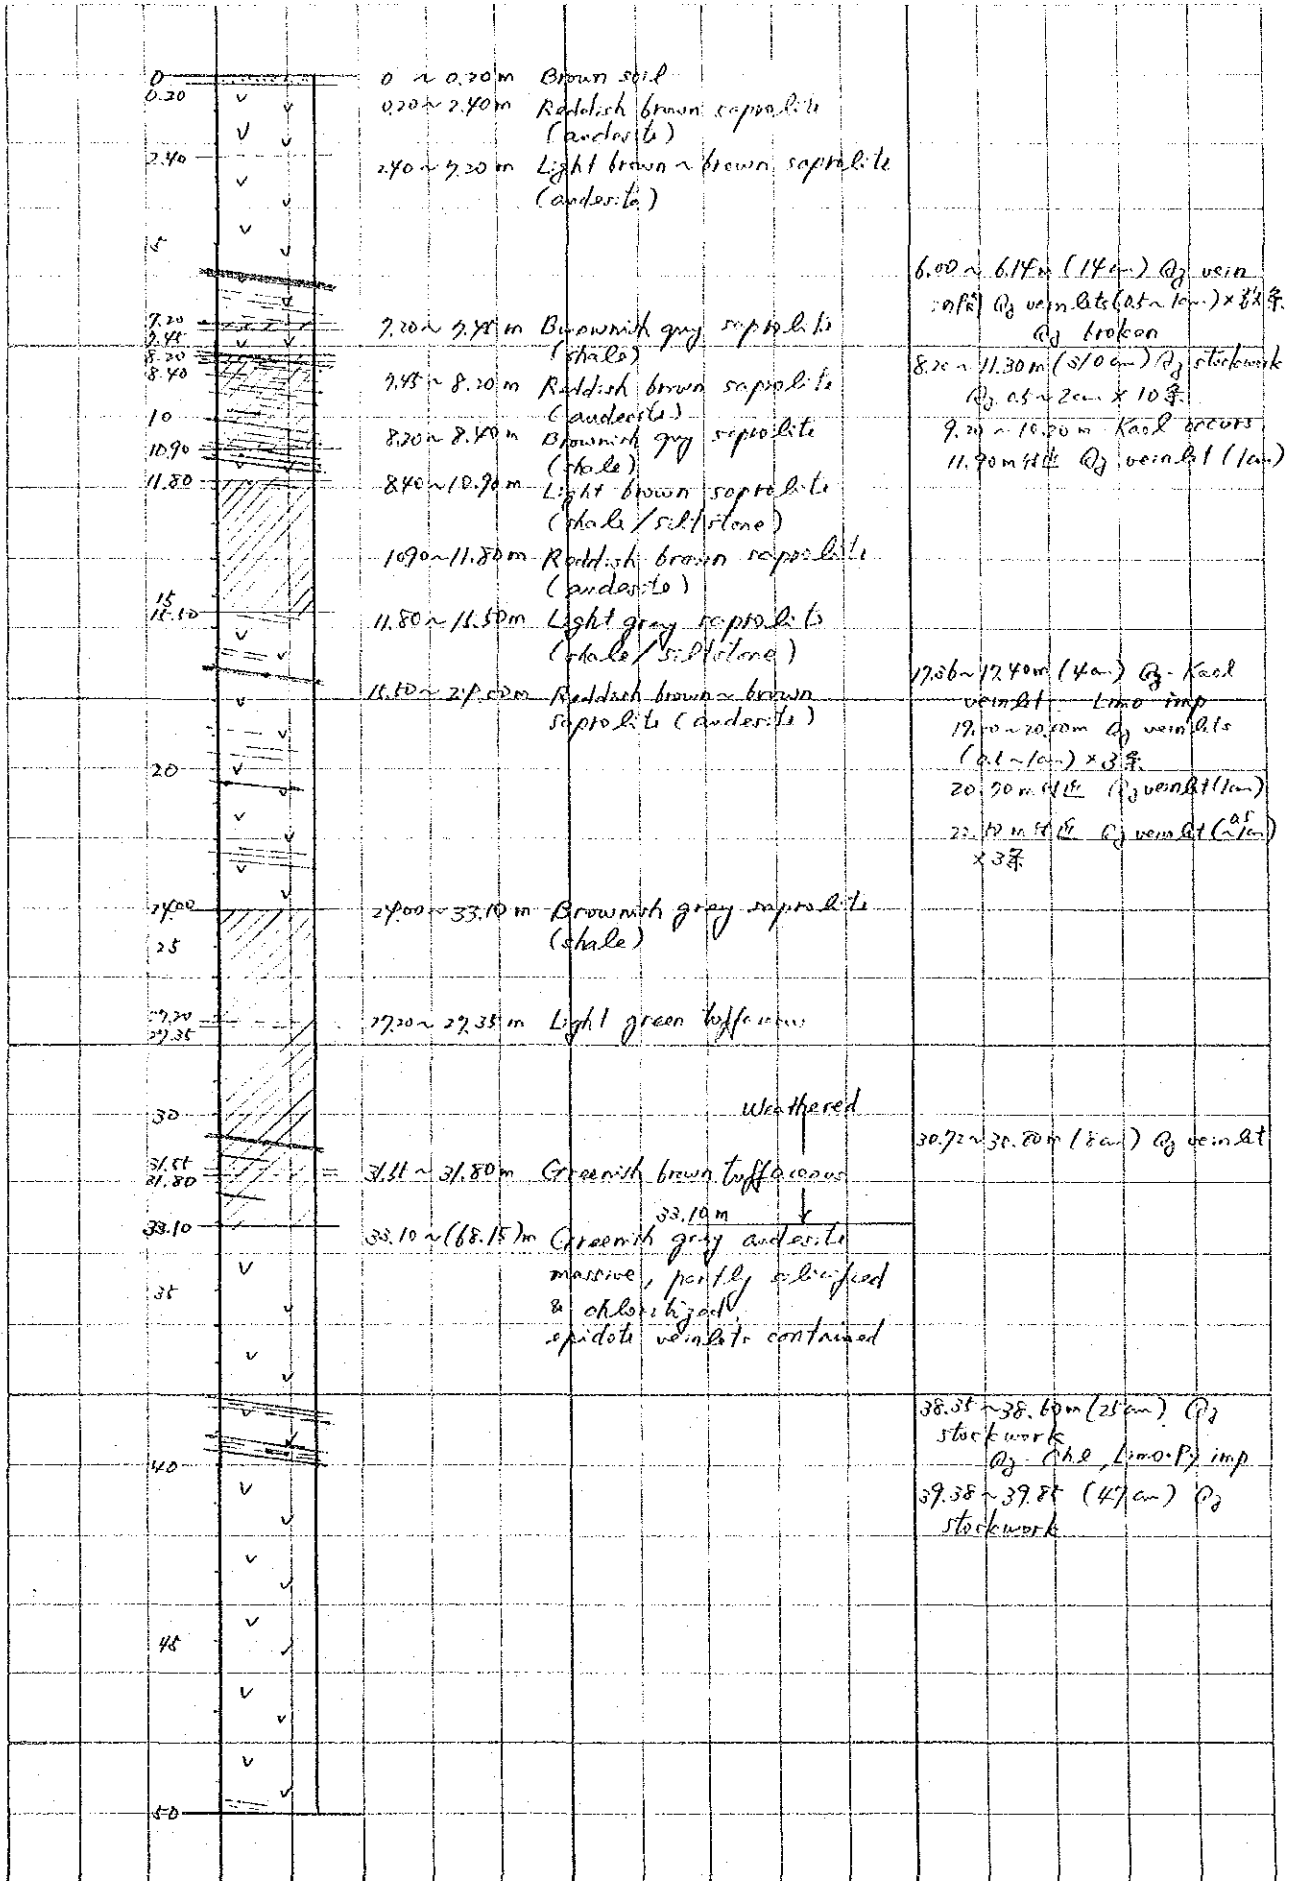 0
0.20
2.40
5
7.20
7.45
8.20
8.40
10
10.90
11.80
15
15.50
20
24.00
25
27.20
27.35
30
31.55
31.80
33.10
35
40
45
50
0 ~ 0.20m Brown soil
0.20 ~ 2.40m Reddish brown saprolite
(andesite)
2.40 ~ 7.20m Light brown ~ brown saprolite
(andesite)
7.20 ~ 7.45m Brownish gray saprolite
(shale)
7.45 ~ 8.20m Reddish brown saprolite
(andesite)
8.20 ~ 8.40m Brownish gray saprolite
(shale)
8.40 ~ 10.90m Light brown saprolite
(shale / siltstone)
10.90 ~ 11.80m Reddish brown saprolite
(andesite)
11.80 ~ 15.50m Light gray saprolite
(shale / siltstone)
15.50 ~ 24.00m Reddish brown ~ brown
saprolite (andesite)
24.00 ~ 33.10m Brownish gray saprolite
(shale)
27.20 ~ 27.35m Light green tuffaceous
Weathered
31.55 ~ 31.80m Greenish brown tuffaceous
33.10m
33.10 ~ (68.15)m Greenish gray andesite
massive, partly silicified
& chloritized,
epidote veinlets contained
6.00 ~ 6.14m (14cm) Qz vein
Qz veinlets (0.5 ~ 1cm) × 数条
Qz broken
8.20 ~ 11.30m (310cm) Qz stockwork
Qz 0.5 ~ 2cm × 10条
9.20 ~ 10.20m Kaol occurs
11.90m付近 Qz veinlet (1cm)
17.36 ~ 17.40m (4cm) Qz-Kaol
veinlet Limo imp
~ 20.00m Qz veinlets
~ 1cm) × 3条
20.70m付近 Qz veinlet (1cm)
付近 Qz veinlet (0.5 ~ 1cm)
× 3条
30.72 ~ 30.80m (8cm) Qz veinlet
38.35 ~ 38.60m (25cm) Qz
stockwork
Qz-Chl, Limo-Py imp
39.38 ~ 39.85 (47cm) Qz
stockwork